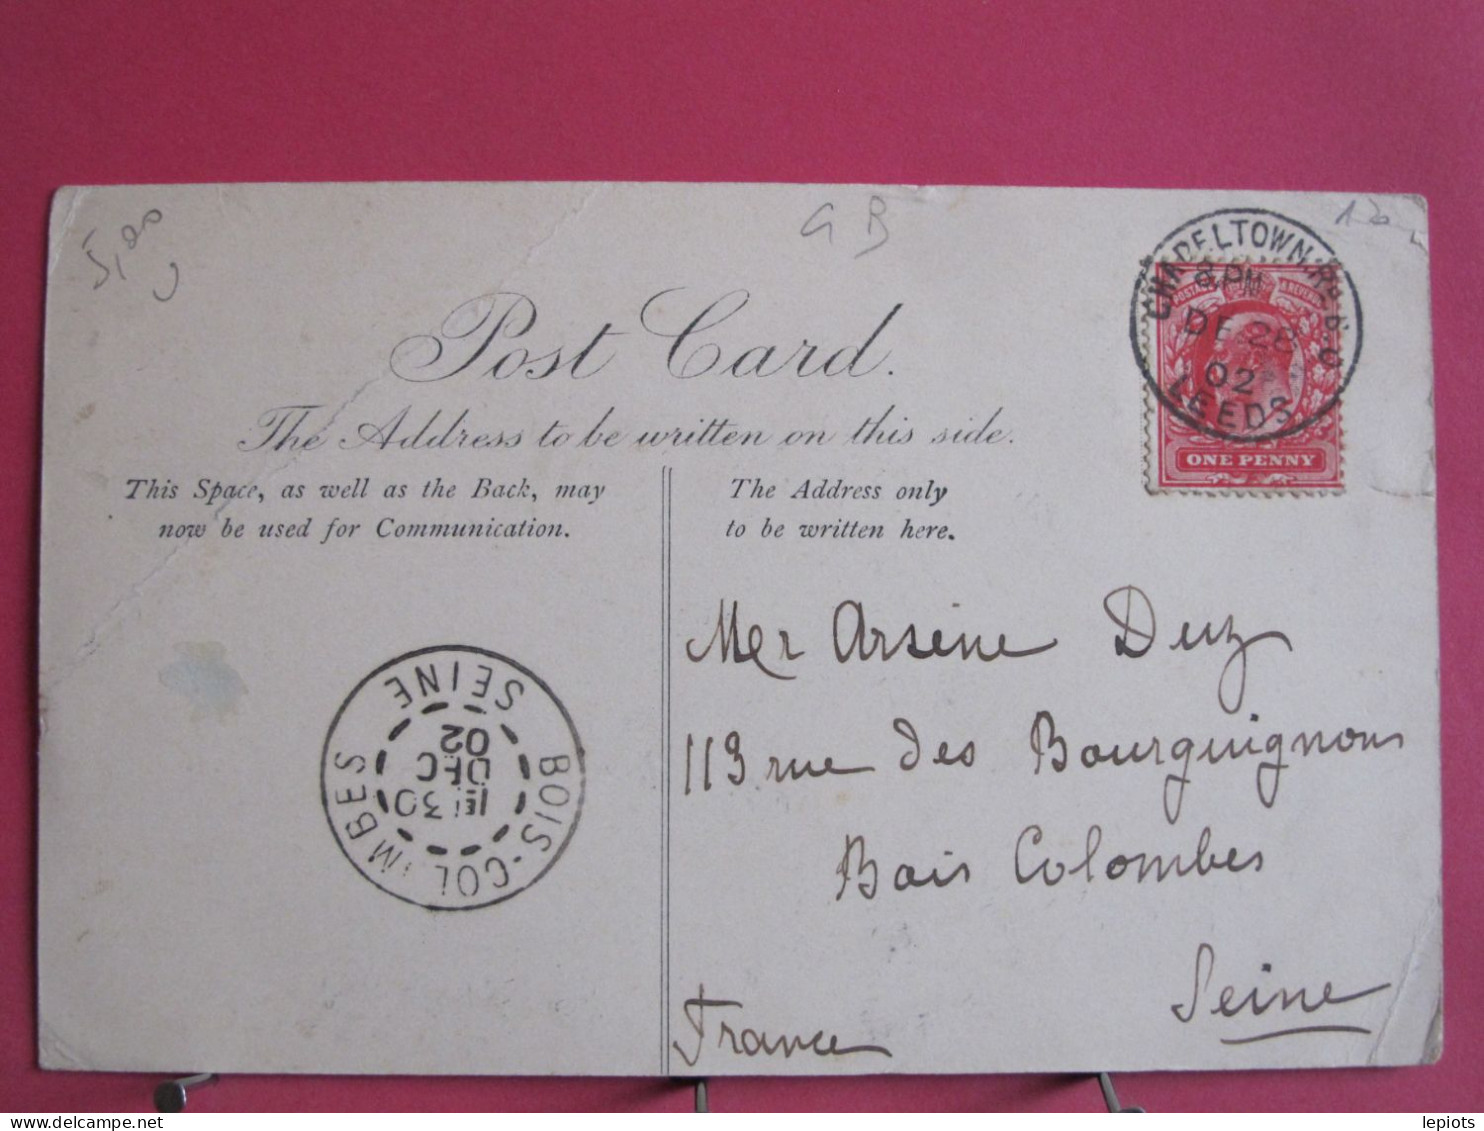 5,00
GB
CHAPELTOWN RD B.O
8 PM
DE 28
02
LEEDS
POSTAGE & REVENUE
ONE PENNY
Post Card.
The Address to be written on this side.
This Space, as well as the Back, may
now be used for Communication.
The Address only
to be written here.
Mer Arsène Duz
113 rue des Bourguignons
Bois Colombes
Seine
France
BOIS-COLOMBES
SEINE
30
DEC
02
lepiots